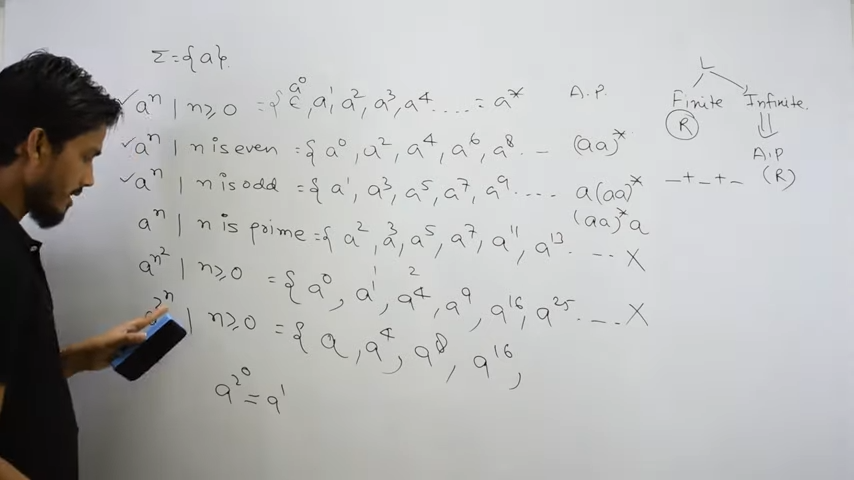 Σ={a}.
✓ aⁿ | n≥0 = { a⁰ ε, a¹, a², a³, a⁴ ..... = a* A.P.
✓ aⁿ | n is even = { a⁰, a², a⁴, a⁶, a⁸. .. (aa)*
✓ aⁿ | n is odd = { a¹, a³, a⁵, a⁷, a⁹ .... a(aa)*
(aa)*a
aⁿ | n is prime = { a², a³, a⁵, a⁷, a¹¹, a¹³. .. X
a^n² | n≥0 = { a⁰, a¹, a⁴, a⁹, a¹⁶, a²⁵ ..... X
1 2
2ⁿ | n≥0 = { a, a⁴, a⁸, a¹⁶,
a^2⁰ = a¹
L
Finite Infinite.
R
A.P
(R)
_+_+_